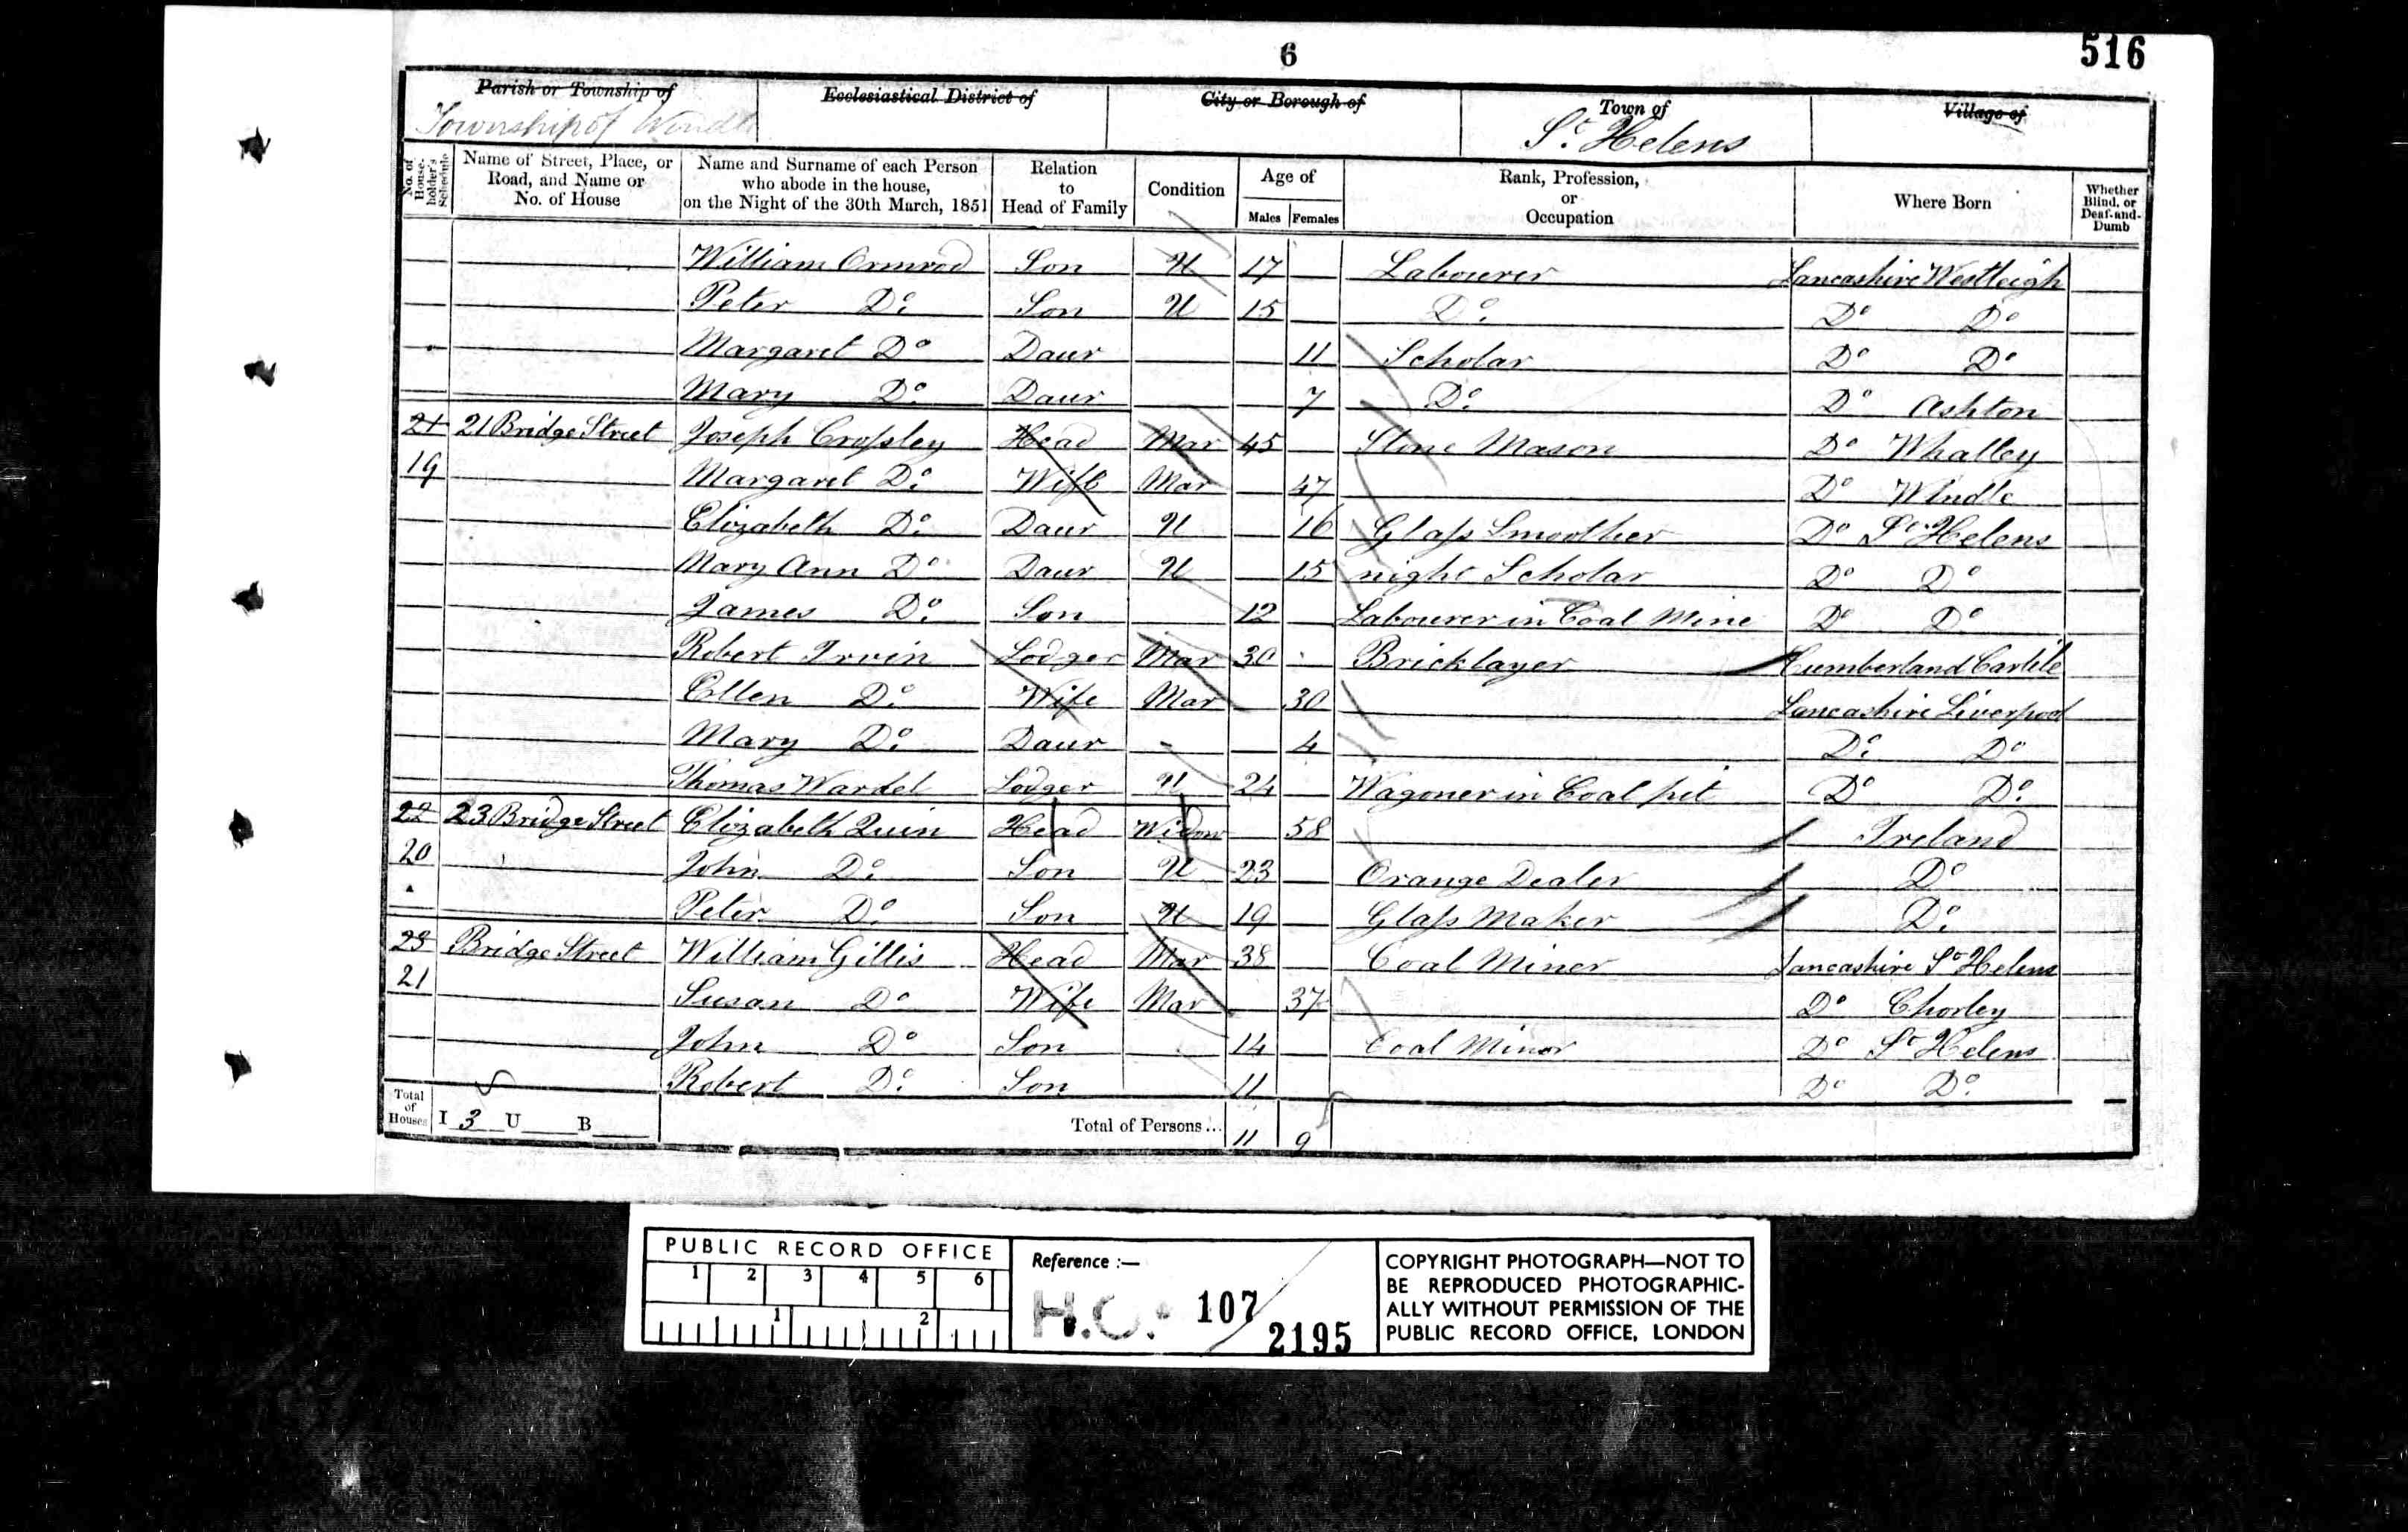 6
516
Parish or Township of
Township of Windle
Ecclesiastical District of
City or Borough of
Town of
St. Helens
Village of
No. of House-holder's Schedule
Name of Street, Place, or Road, and Name or No. of House
Name and Surname of each Person who abode in the house, on the Night of the 30th March, 1851
Relation to Head of Family
Condition
Age of
Males Females
Rank, Profession, or Occupation
Where Born
Whether Blind, or Deaf-and-Dumb
William Ormrod Son U 17 Labourer Lancashire Westleigh
Peter Do. Son U 15 Do. Do Do
Margaret Do Daur 11 Scholar Do Do
Mary Do. Daur 7 Do. Do Ashton
21 21 Bridge Street Joseph Crossley Head Mar 45 Stone Mason Do Whalley
19 Margaret Do. Wife Mar 47 Do Windle
Elizabeth Do. Daur U 16 Glass Smoother Do St. Helens
Mary Ann Do Daur U 15 night Scholar Do Do
James Do. Son 12 Labourer in Coal Mine Do Do
Robert Irvin Lodger Mar 30 Bricklayer Cumberland Carlile
Ellen Do. Wife Mar 30 Lancashire Liverpool
Mary Do. Daur 4 Do. Do
Thomas Wardel Lodger U 24 Wagoner in Coal pit Do Do.
22 23 Bridge Street Elizabeth Quin Head Widow 58 Ireland
20 John Do. Son U 23 Orange Dealer Do
Peter Do. Son U 19 Glass Maker Do.
23 Bridge Street William Gillis Head Mar 38 Coal Miner Lancashire St Helens
21 Susan Do Wife Mar 37 Do Chorley
John Do Son 14 Coal Minor Do St Helens
Robert Do. Son 11 Do Do.
Total of Houses I 3 U B Total of Persons... 11 9
PUBLIC RECORD OFFICE
1 2 3 4 5 6
1 2
Reference :—
H.O. 107/2195
COPYRIGHT PHOTOGRAPH—NOT TO
BE REPRODUCED PHOTOGRAPHIC-
ALLY WITHOUT PERMISSION OF THE
PUBLIC RECORD OFFICE, LONDON